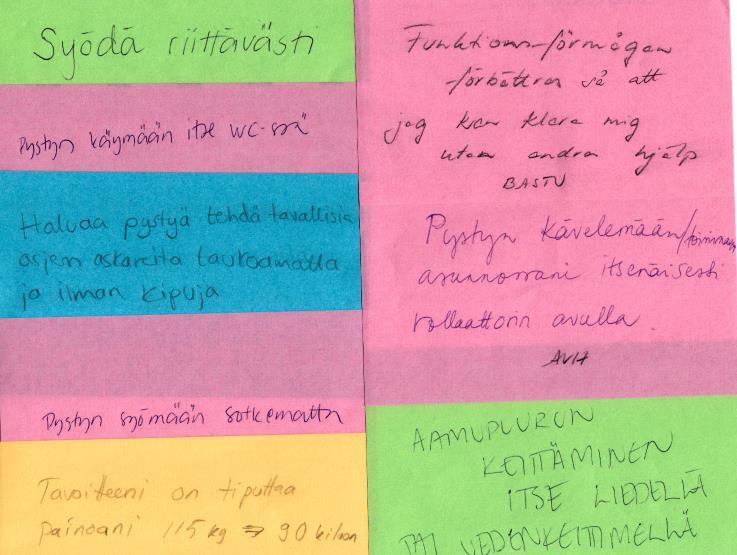 Syödä riittävästi
Pystyn käymään itse WC-ssä
Haluaa pystyä tehdä tavallisia
arjen askareita taukoamatta
ja ilman kipuja
Pystyn syömään sotkematta
Tavoitteeni on tiputtaa
painoani 115 kg ⇒ 90 kiloon
Funktions-förmågan
förbättras så att
jag kan klara mig
utan andra hjälp
BASTU
Pystyn kävelemään/toimimaan
asunnossani itsenäisesti
rollaattorin avulla.
AVH
AAMUPUURON
KEITTÄMINEN
ITSE LIEDELLÄ
TAI VEDENKEITTIMELLÄ